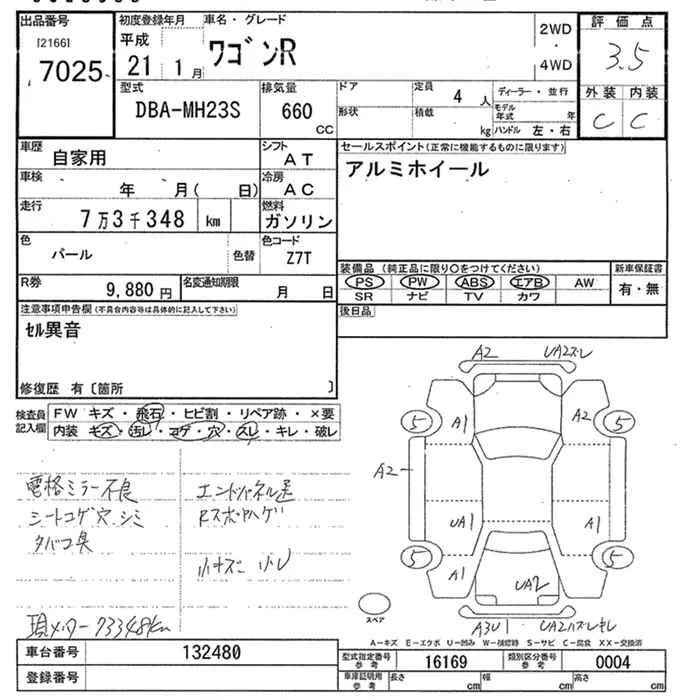 出品番号 初度登録年月 車名・グレード 2WD 評価点
[2166] 平成 ワゴンR ・ 3.5
7025 21 1月 4WD
型式 排気量 ドア 定員 4人 ディーラー・並行 外装 内装
DBA-MH23S 660 CC 形状 積載 kg モデル年式 年 C C
ハンドル 左・右
車歴 自家用 シフト AT セールスポイント(正常に機能するものに限ります)
車検 年 月( 日) 冷房 AC アルミホイール
走行 7万3千348 km 燃料 ガソリン
色 パール 色替 色コード Z7T
装備品 (純正品に限り○をつけてください) 新車保証書
R券 9,880円 名変通知期限 月 日 PS PW ABS エアB AW 有・無
SR ナビ TV カワ
注意事項申告欄(不具合内容等は具体的に記入して下さい) 後日品
セル異音
修復歴 有〔箇所 〕
検査員記入欄 FW キズ・飛石・ヒビ割・リペア跡・×要
内装 キズ・汚レ・コゲ・穴・スレ・キレ・破レ
A2 UA2ズレ
5 A1 A2 5
A2
UA1 A1
5 A1 UA2 5
スペア
A3U1
電格ミラー不良
シートコゲ穴シミ
タバコ臭
現メーター73348km
A-キズ E-エクボ U-凹み W-補修跡 S-サビ C-腐食 XX-交換済
車台番号 132480 型式指定番号 参考 16169 類別区分番号 参考 0004
登録番号 車庫証明用 参考 長さ cm 幅 cm 高さ cm